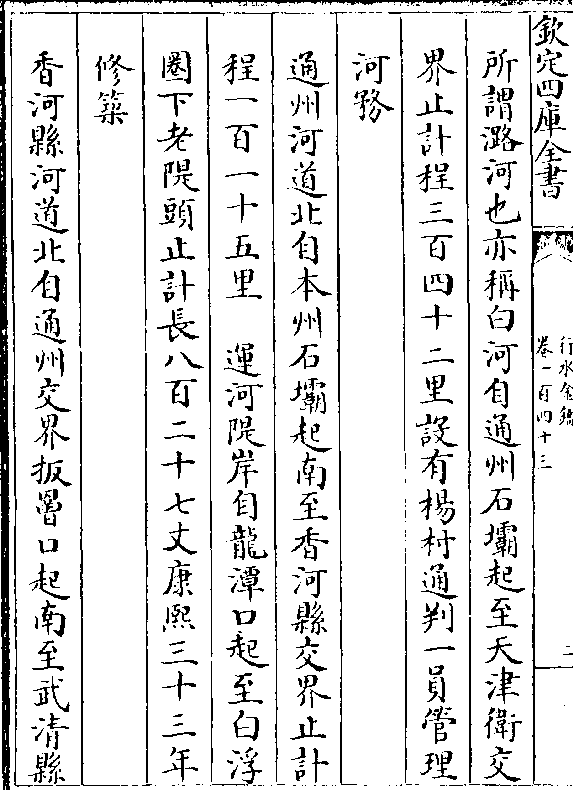 欽定四庫全書
行水金鑑
卷一百四十三
二
所謂潞河也亦稱白河自通州石壩起至天津衛交
界止計程三百四十二里設有楊村通判一員管理
河務
通州河道北自本州石壩起南至香河縣交界止計
程一百一十五里　運河隄岸自龍潭口起至白浮
圈下老隄頭止計長八百二十七丈康熙三十三年
修築
香河縣河道北自通州交界扳罾口起南至武清縣